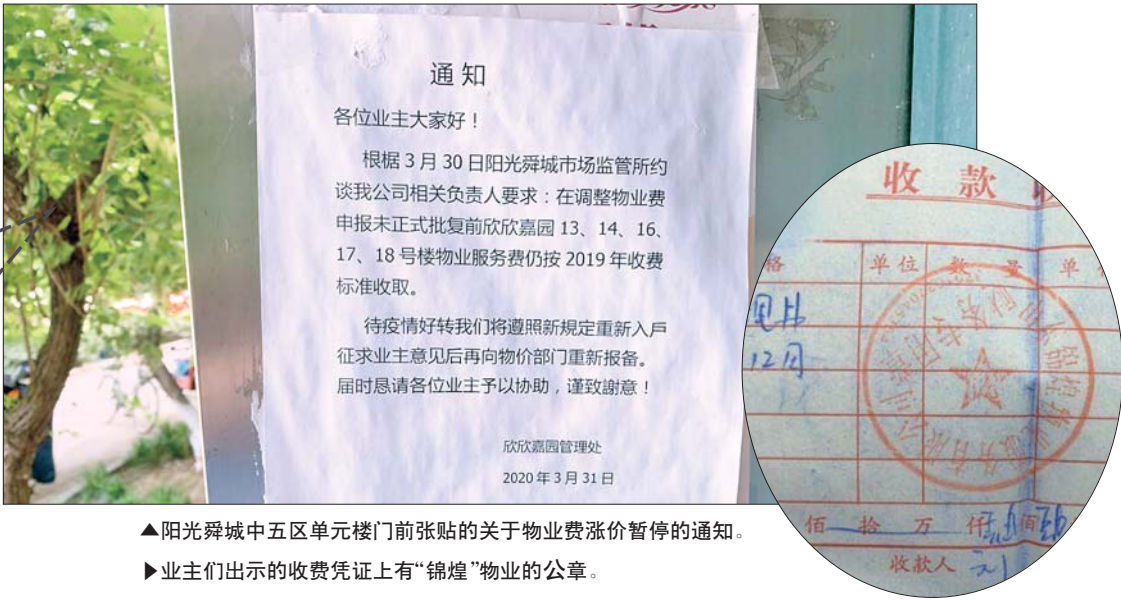 通知
各位业主大家好！
根椐 3 月 30 日阳光舜城市场监管所约
谈我公司相关负责人要求：在调整物业费
申报未正式批复前欣欣嘉园 13、14、16、
17、18 号楼物业服务费仍按 2019 年收费
标准收取。
待疫情好转我们将遵照新規定重新入戶
征求业主意见后再向物价部门重新报备。
届时恳请各位业主予以协助，谨致謝意！
欣欣嘉园管理处
2020 年 3 月 31 日
收 款
格 单位 数 量 单
12月
锦煌物业服务有限公司
佰 拾 万 仟 佰
收款人
▲阳光舜城中五区单元楼门前张贴的关于物业费涨价暂停的通知。
▶业主们出示的收费凭证上有“锦煌”物业的公章。